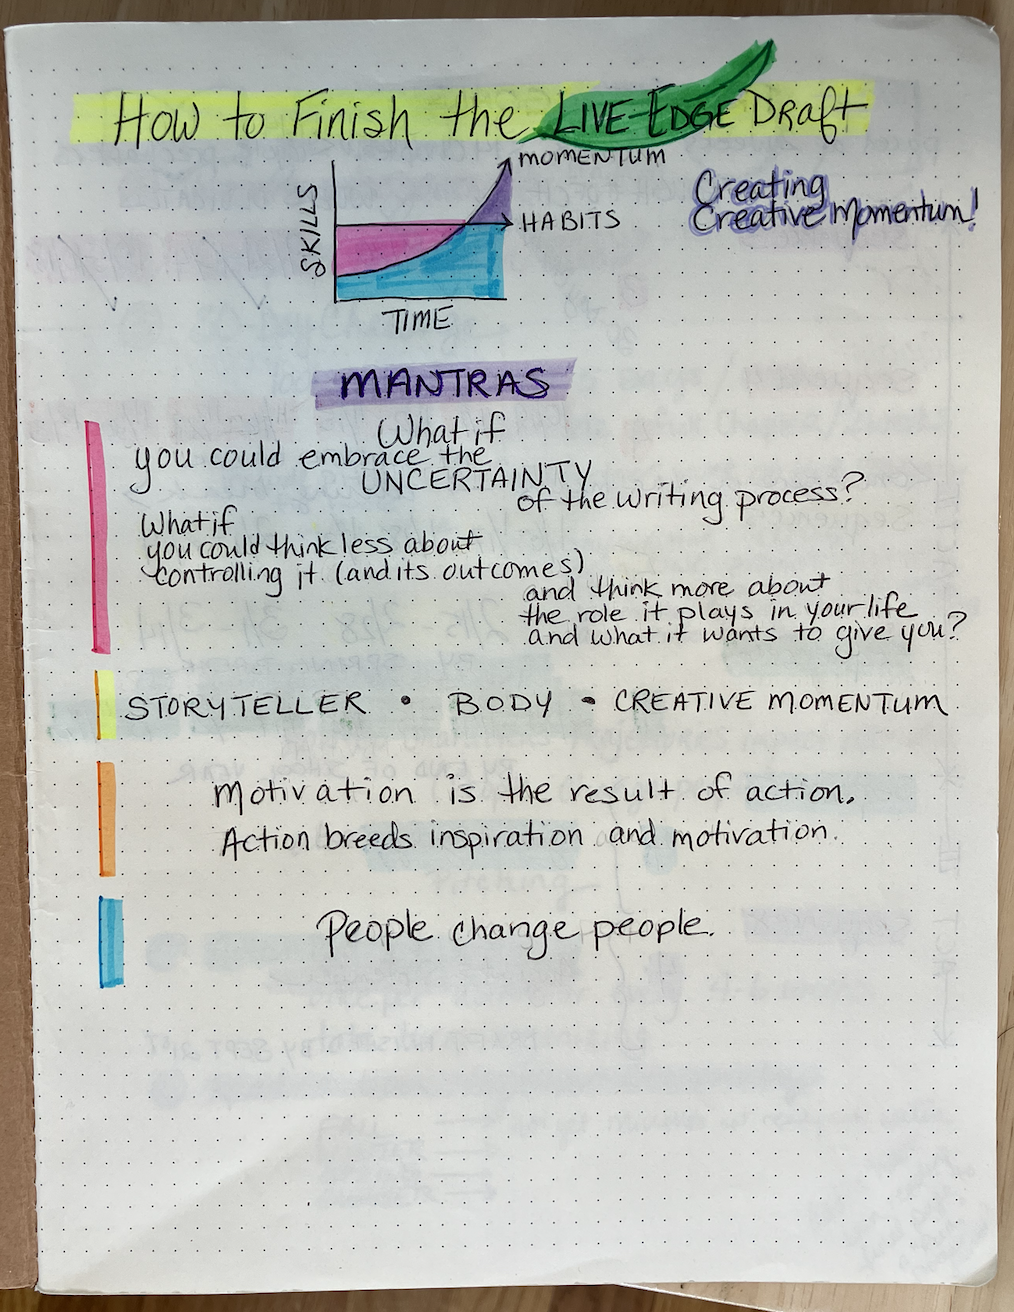 How to Finish the LIVE-EDGE Draft
MOMENTUM
HABITS
SKILLS
TIME
Creating
Creative Momentum!
MANTRAS
What if
you could embrace the
UNCERTAINTY
of the writing process?
What if
you could think less about
controlling it (and its outcomes)
and think more about
the role it plays in your life
and what it wants to give you?
STORYTELLER • BODY • CREATIVE MOMENTUM
Motivation is the result of action.
Action breeds inspiration and motivation.
People change people.